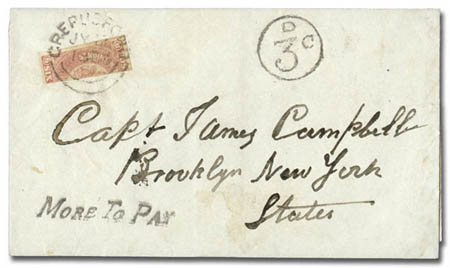 D
3 C
Capt James Campbell
Brooklyn New York
States
MORE TO PAY